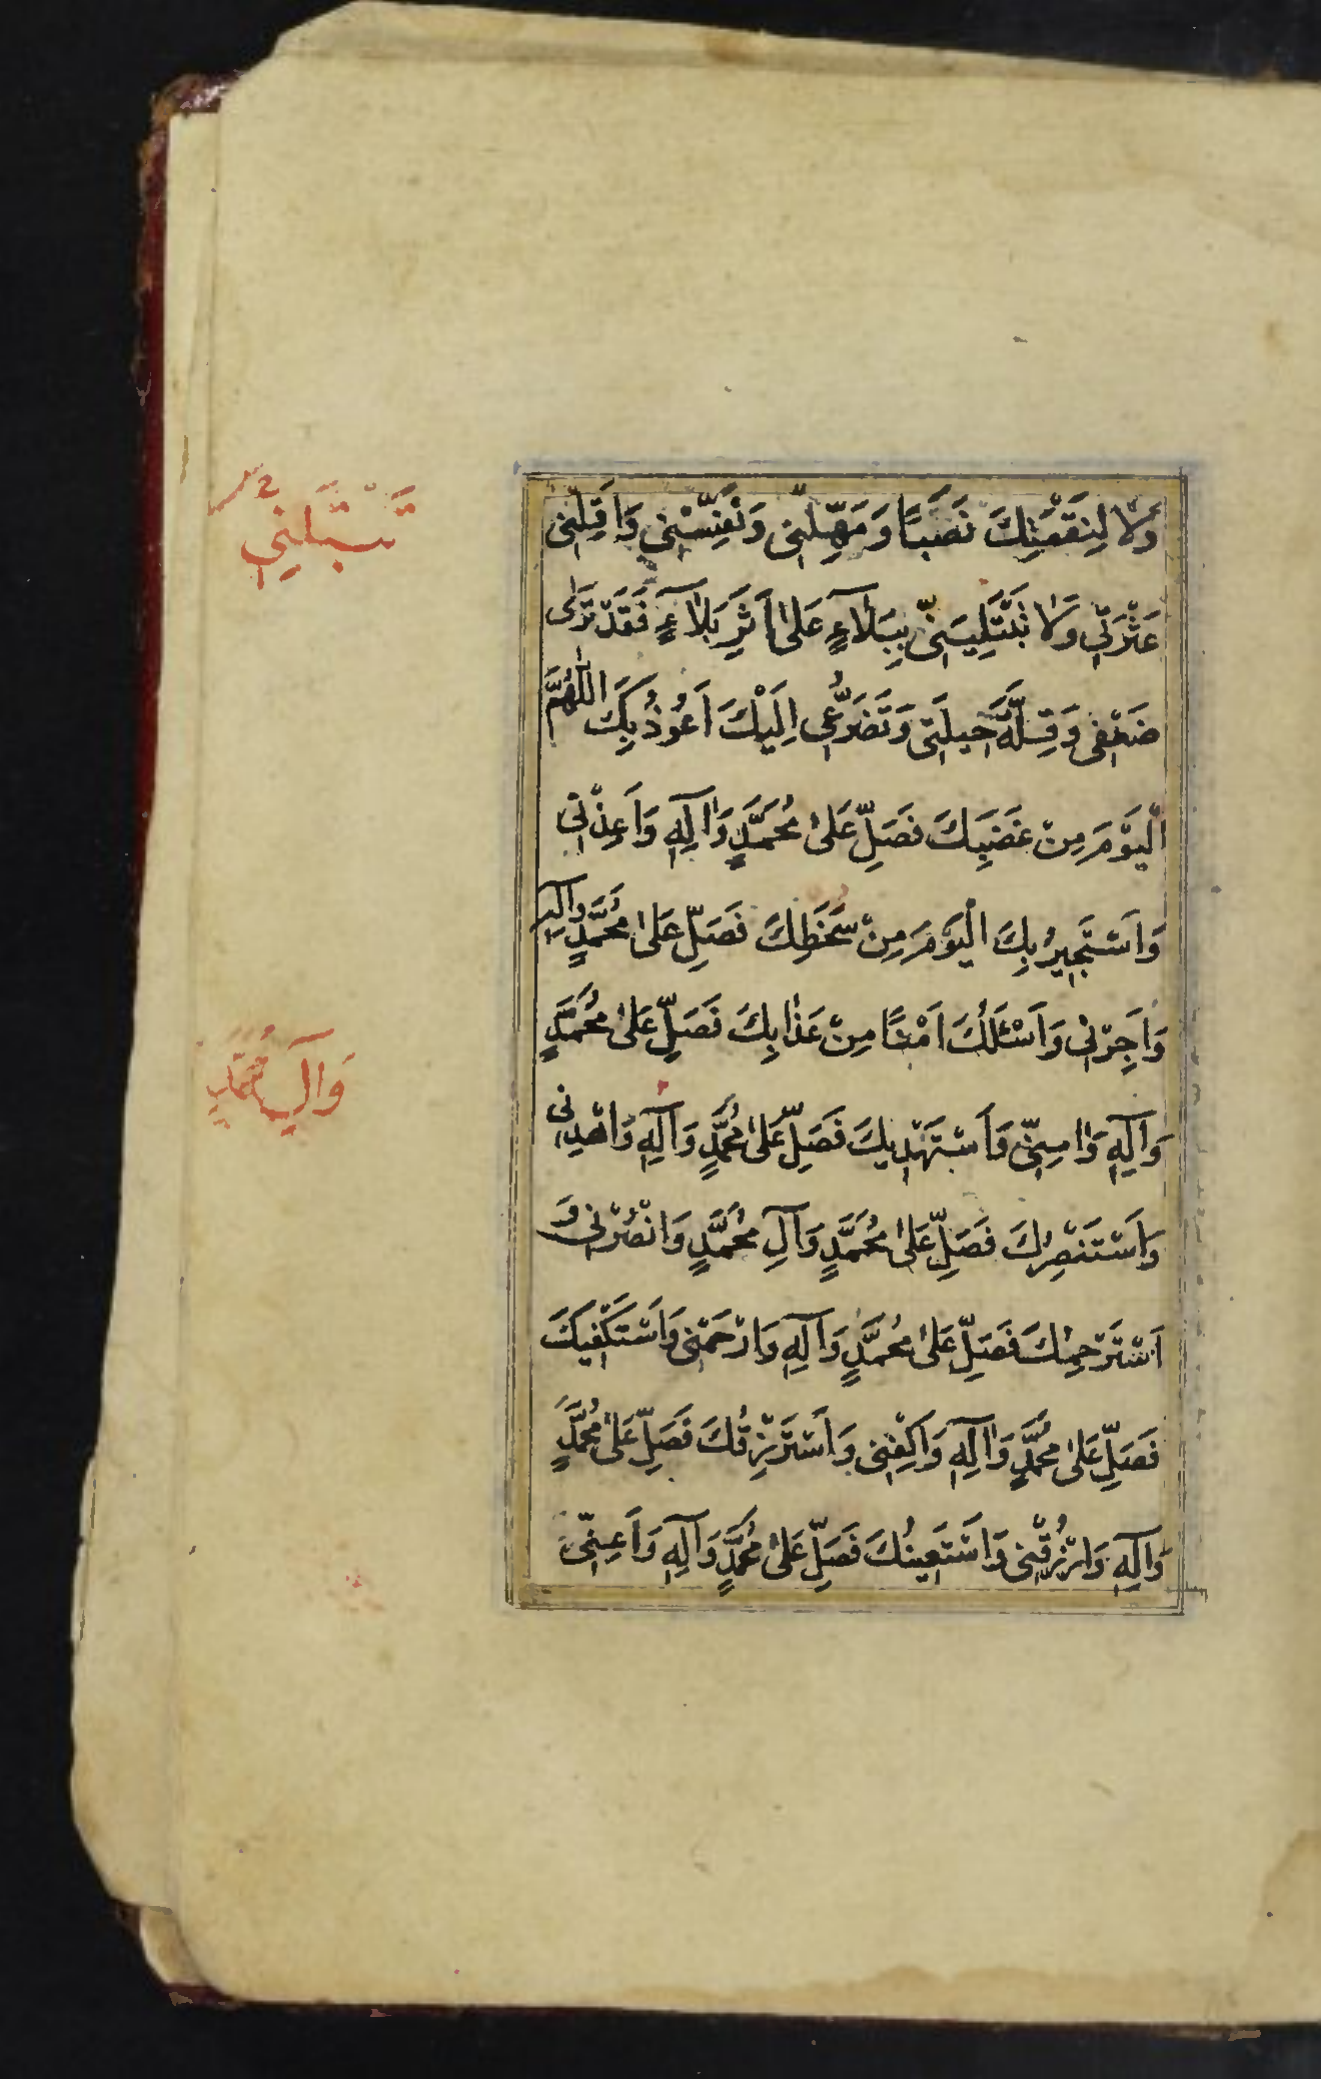 وَلَا لِنِقْمَتِكَ نَصَبًا وَمَهِّلْنِی وَنَفِّسْنِی وَاَقِلْنِی
عَثْرَتِی وَلَا تَبْتَلِیَنِّی بِبَلَآءٍ عَلٰی اَثَرِ بَلَآءٍ فَقَدْ تَرٰی
ضَعْفِی وَقِلَّةَ حِیلَتِی وَتَضَرُّعِی اِلَیْكَ اَعُوذُ بِكَ اللّٰهُمَّ
الْیَوْمَ مِنْ غَضَبِكَ فَصَلِّ عَلٰی مُحَمَّدٍ وَاٰلِهِ وَاَعِذْنِی
وَاَسْتَجِیرُ بِكَ الْیَوْمَ مِنْ سَخَطِكَ فَصَلِّ عَلٰی مُحَمَّدٍ وَاٰلِهِ
وَاَجِرْنِی وَاَسْئَلُكَ اَمْنًا مِنْ عَذَابِكَ فَصَلِّ عَلٰی مُحَمَّدٍ
وَآلِهِ وَاٰمِنِّی وَاَسْتَهْدِیكَ فَصَلِّ عَلٰی مُحَمَّدٍ وَآلِهِ وَاهْدِنِی
وَاَسْتَنْصِرُكَ فَصَلِّ عَلٰی مُحَمَّدٍ وَآلِ مُحَمَّدٍ وَانْصُرْنِی وَ
اَسْتَرْحِمُكَ فَصَلِّ عَلٰی مُحَمَّدٍ وَآلِهِ وَارْحَمْنِی وَاَسْتَكْفِیكَ
فَصَلِّ عَلٰی مُحَمَّدٍ وَاٰلِهِ وَاكْفِنِی وَاَسْتَرْزِقُكَ فَصَلِّ عَلٰی مُحَمَّدٍ
وَآلِهِ وَارْزُقْنِی وَاَسْتَعِینُكَ فَصَلِّ عَلٰی مُحَمَّدٍ وَآلِهِ وَاَعِنِّی
تَبْتَلِنِي
وَآلِ مُحَمَّدٍ